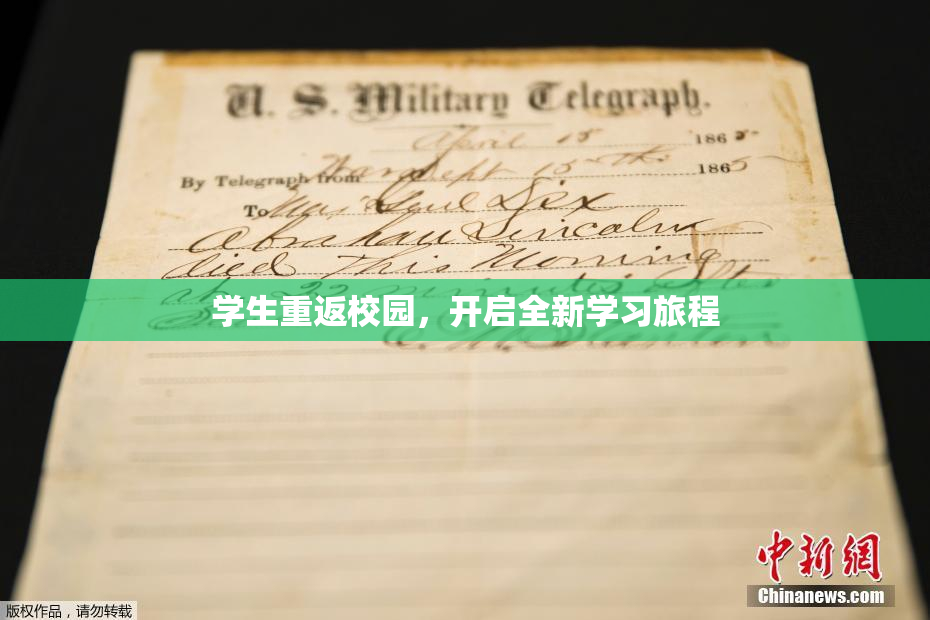 U. S. Military Telegraph.
April 15 1865
By Telegraph from War Dept 15th 1865
To Maj Genl Dix
Abraham Lincoln
died This Morning
at 22 minutes after
学生重返校园，开启全新学习旅程
中新网
Chinanews.com
版权作品，请勿转载